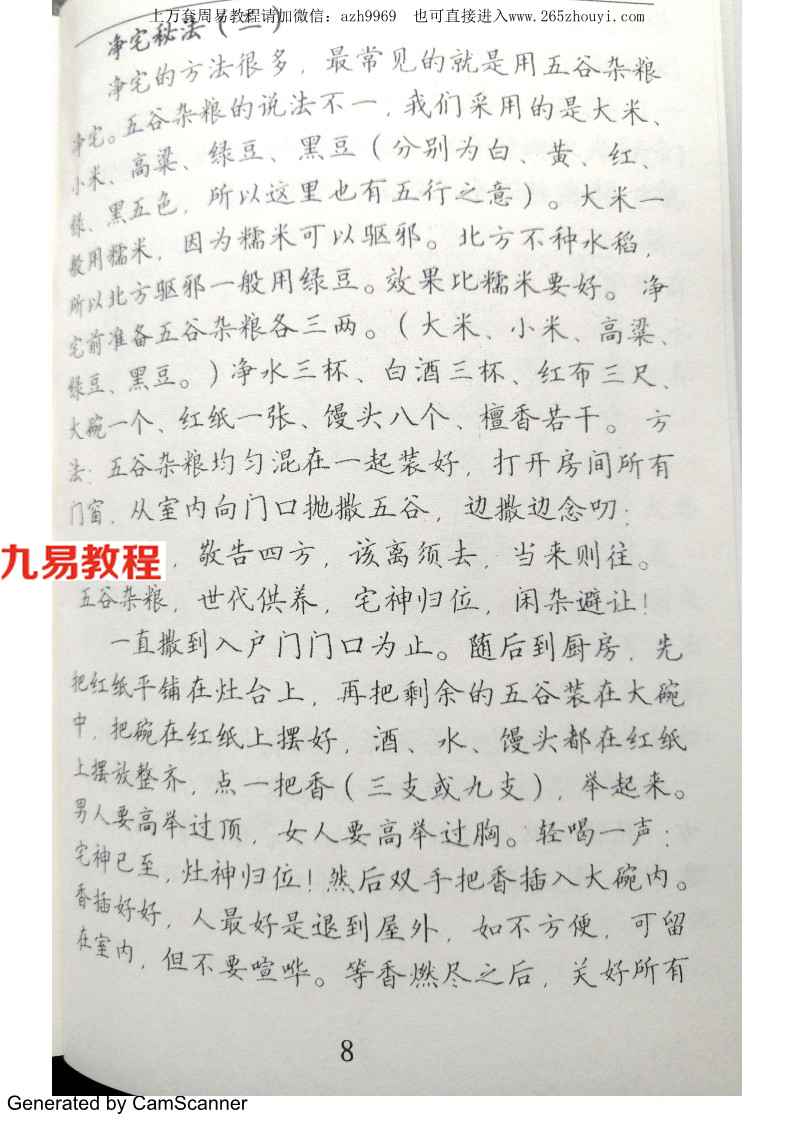 上万套周易教程请加微信：azh9969 也可直接进入www.265zhouyi.com
净宅秘法（二）
净宅的方法很多，最常见的就是用五谷杂粮
净宅。五谷杂粮的说法不一，我们采用的是大米、
小米、高粱、绿豆、黑豆（分别为白、黄、红、
绿、黑五色，所以这里也有五行之意）。大米一
般用糯米，因为糯米可以驱邪。北方不种水稻，
所以北方驱邪一般用绿豆。效果比糯米要好。 净
宅前准备五谷杂粮各三两。（大米、小米、高粱、
绿豆、黑豆。）净水三杯、白酒三杯、红布三尺、
大碗一个、红纸一张、馒头八个、檀香若干。 方
法：五谷杂粮均匀混在一起装好，打开房间所有
门窗，从室内向门口抛撒五谷，边撒边念叨：
九易教程
，敬告四方，该离须去，当来则往。
五谷杂粮，世代供养，宅神归位，闲杂避让！
一直撒到入户门门口为止。随后到厨房，先
把红纸平铺在灶台上，再把剩余的五谷装在大碗
中，把碗在红纸上摆好，酒、水、馒头都在红纸
上摆放整齐，点一把香（三支或九支），举起来。
男人要高举过顶，女人要高举过胸。轻喝一声：
宅神已至，灶神归位！然后双手把香插入大碗内。
香插好好，人最好是退到屋外，如不方便，可留
在室内，但不要喧哗。等香燃尽之后，关好所有
8
Generated by CamScanner